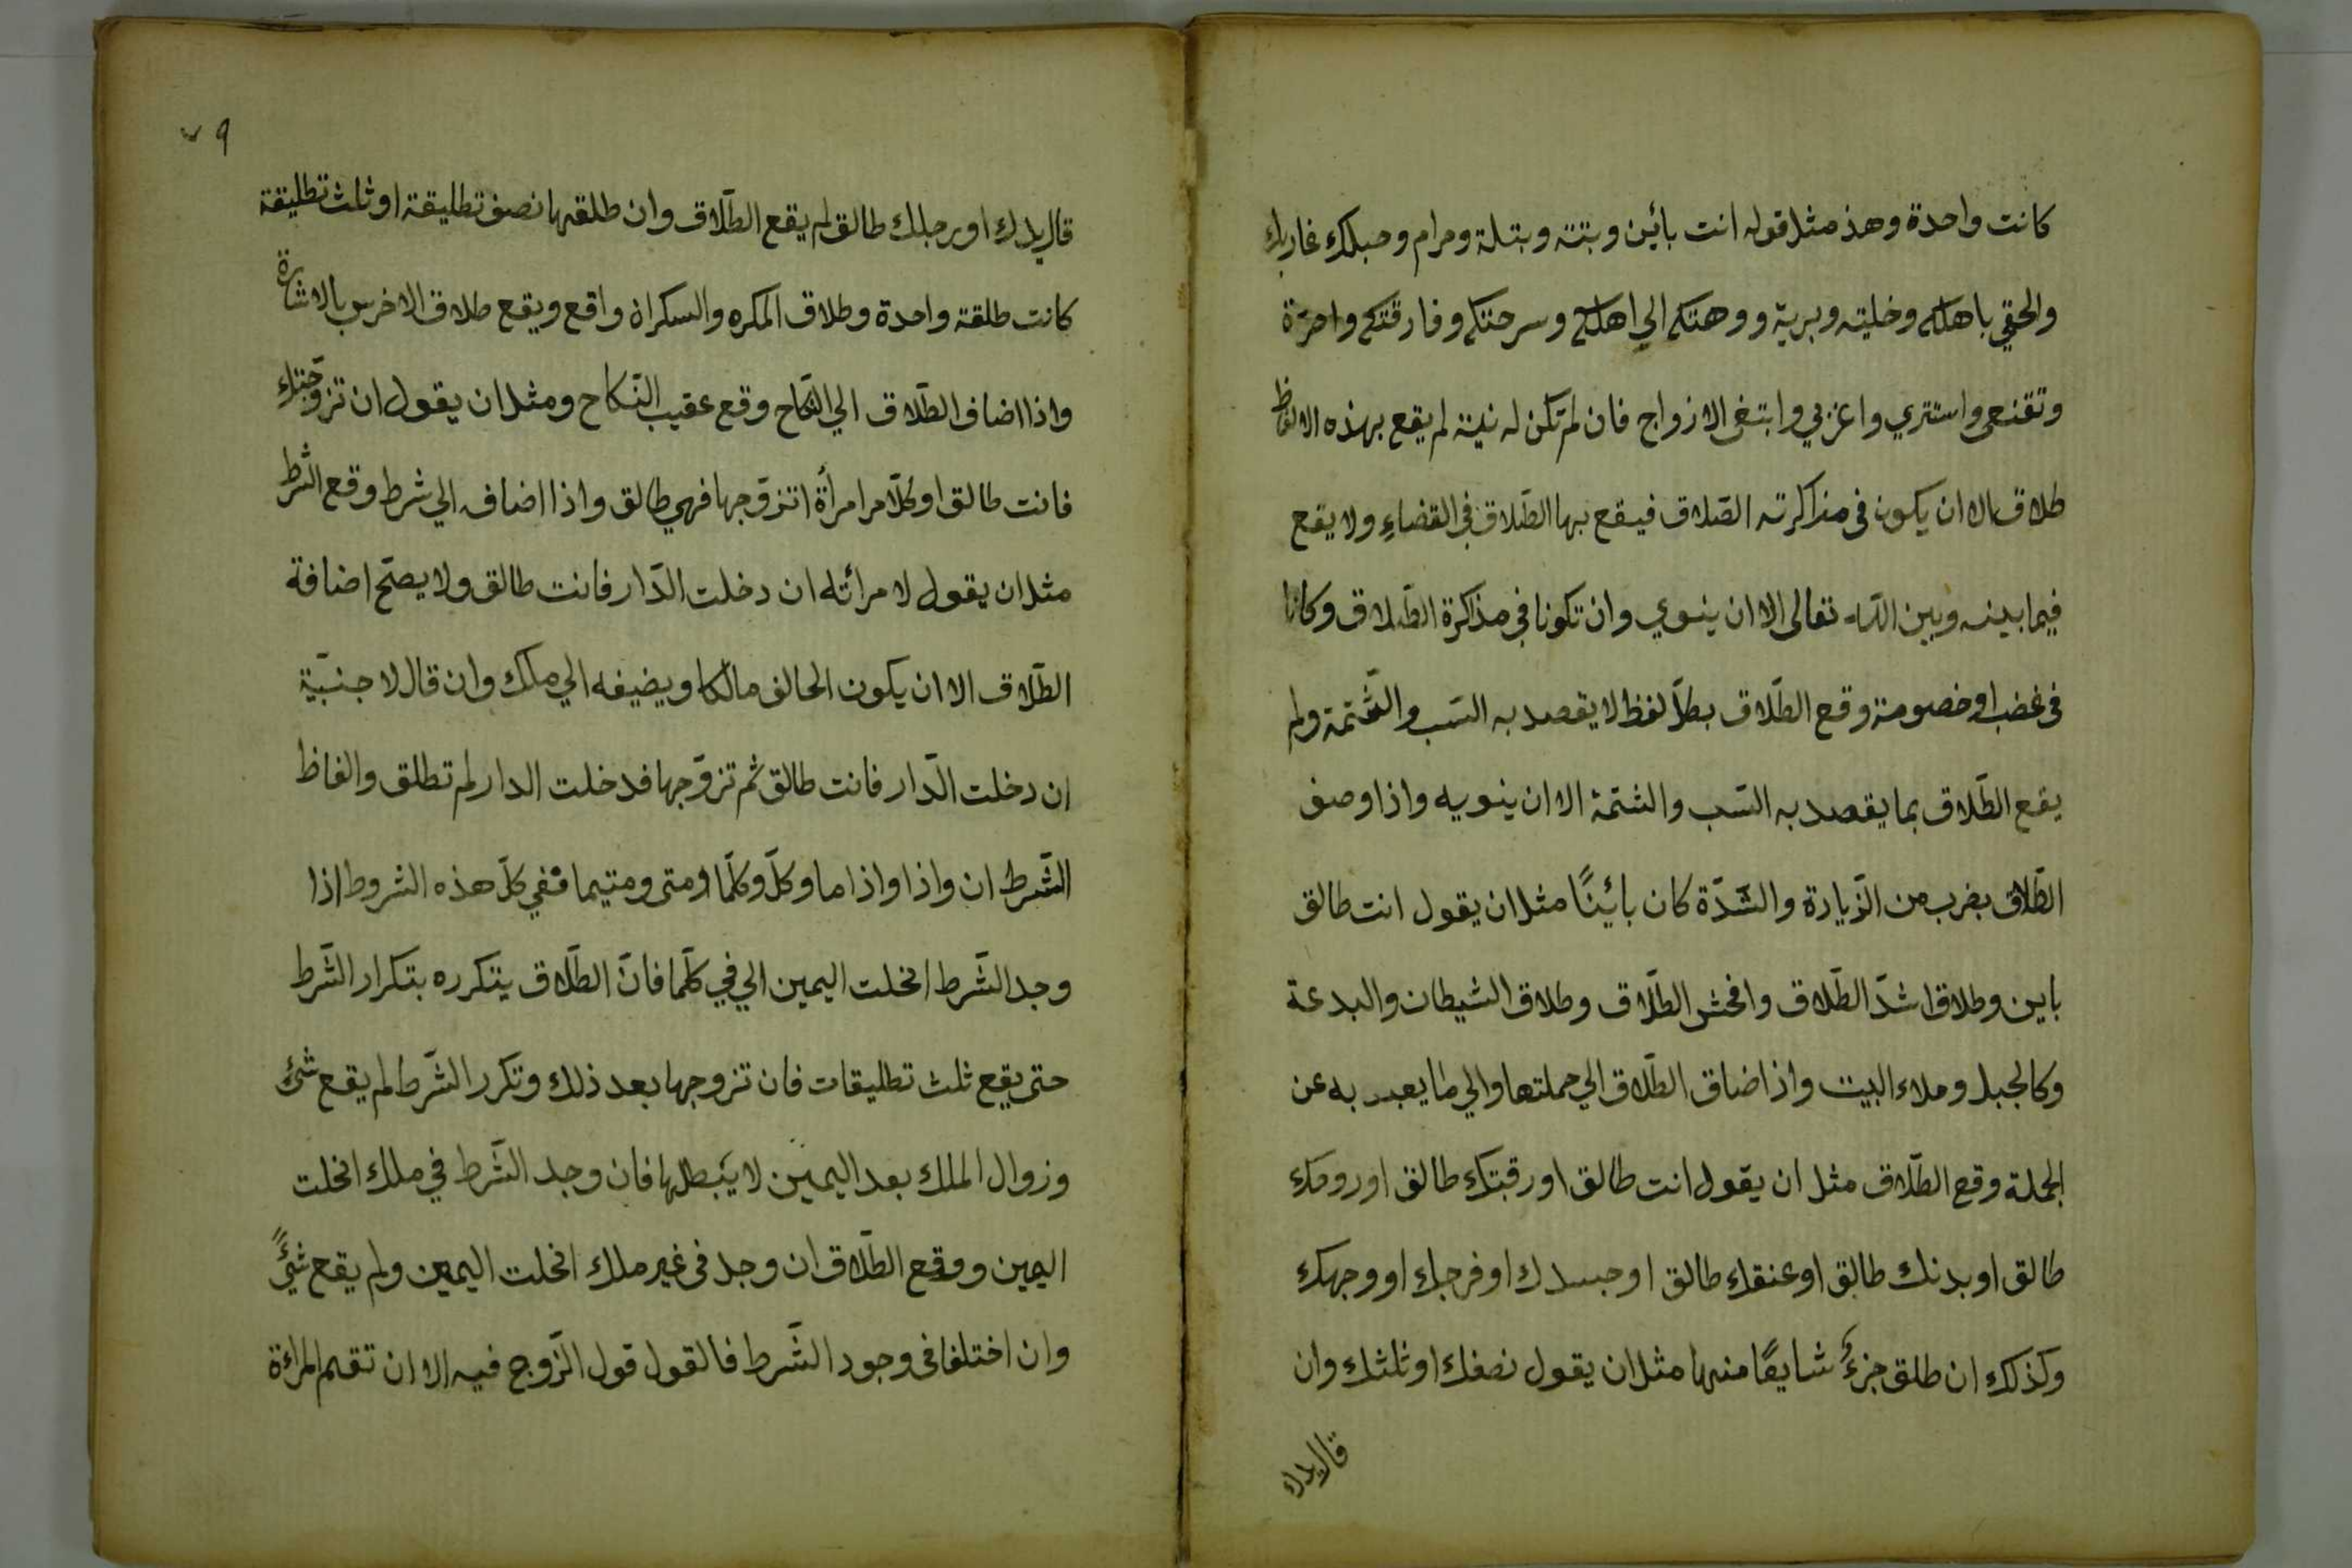 كانت واحدة وهذ مثل قوله انت بائين وبتته وبتلة وحرام وحبلك غاربك
والحقي باهلك وخليته وبرية ووهتك الي اهلك وسرحتك وفارقتك واحرة
وتقنعى واستتري واعزبي وابتغى الازواج فان لم تكن له نية لم يقع بهذه الالفاظ
طلاق الا ان يكون فى مذاكرته الطلاق فيقع بها الطّلاق في القضاءِ ولا يقع
فيما بينه وبين الله تعالى الا ان ينوي وان تكونا في مذاكرة الطّلاق وكانا
فى غضب او خصومة وقع الطّلاق بكلّ لفظ لا يقصد به السّب والشّتمة ولم
يقع الطّلاق بما يقصد به السّب والشتمة الا ان ينويه واذا وصف
الطّلاق بضرب من الزّيادة والشّدّة كان بائينًا مثل ان يقول انت طالق
باين وطلاق اشدّ الطّلاق وافحش الطلّاق وطلاق الشيطان والبدعة
وكالجبل وملاء البيت واذ اضاق الطّلاق الي جملتها والي ما يعبر به عن
الجملة وقع الطّلاق مثل ان يقول انت طالق او رقبتك طالق او روحك
طالق او بدنك طالق او عنقك طالق او جسدك او فرجك او وجهك
وكذلك ان طلق جزءً شايعًا منها مثل ان يقول نصفك او ثلثك وان
قال يدك
٧٩
قال يدك او رجلك طالق لم يقع الطّلاق وان طلقها نصف تطليقة او ثلث تطليقة
كانت طلقة واحدة وطلاق المكره والسكران واقع ويقع طلاق الاخرس بالاشارة
واذا اضاف الطّلاق الي النّكاح وقع عقيب النّكاح ومثل ان يقول ان تزوّجتك
فانت طالق او كلّ امر امرأة اتزوّجها فهي طالق واذا اضافه الي شرط وقع الشرط
مثل ان يقول لامرأته ان دخلت الدّار فانت طالق ولا يصحّ اضافة
الطّلاق الا ان يكون الحالف مالكا او يضيفه الي ملك وان قال لاجنبيّة
ان دخلت الدّار فانت طالق ثم تزوّجها فدخلت الدار لم تطلق والفاظ
الشّرط ان واذا واذا ما وكلّ وكلّما ومتى ومتيما ففي كلّ هذه الشروط اذا
وجد الشّرط انحلت اليمين الي في كلّما فانّ الطّلاق يتكرره بتكرار الشّرط
حتى يقع ثلث تطليقات فان تزوجها بعد ذلك وتكرر الشّرط لم يقع شئ
وزوال الملك بعد اليمين لا يبطلها فان وجد الشّرط في ملك انحلت
اليمين ووقع الطّلاق ان وجد فى غير ملك انحلت اليمين ولم يقع شئً
وان اختلفا فى وجود الشّرط فالقول قول الزّوج فيه الا ان تقم المراءة